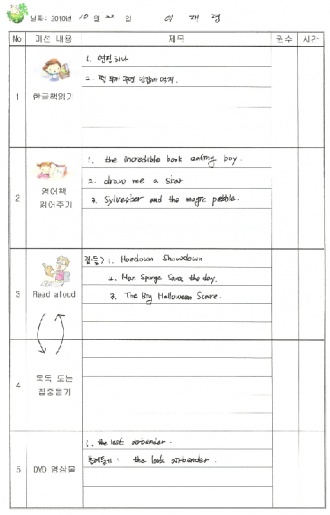 날짜: 2010년 10 월 22 일
No 미션 내용 제목 권수 시간
1 한글책읽기
1. 연필 하나
2.
2 영어책 읽어주기
1. the incredible book eating boy.
2. draw me a star
3. Sylvester and the magic pebble.
3 Read aloud
집듣> 1. Hoedown Showdown
2. Mac Sponge Saves the day.
3. The Big Halloween Scare.
4 묵독 또는
집중듣기
5 DVD 영상물
1. the last airbender.
the last airbender.